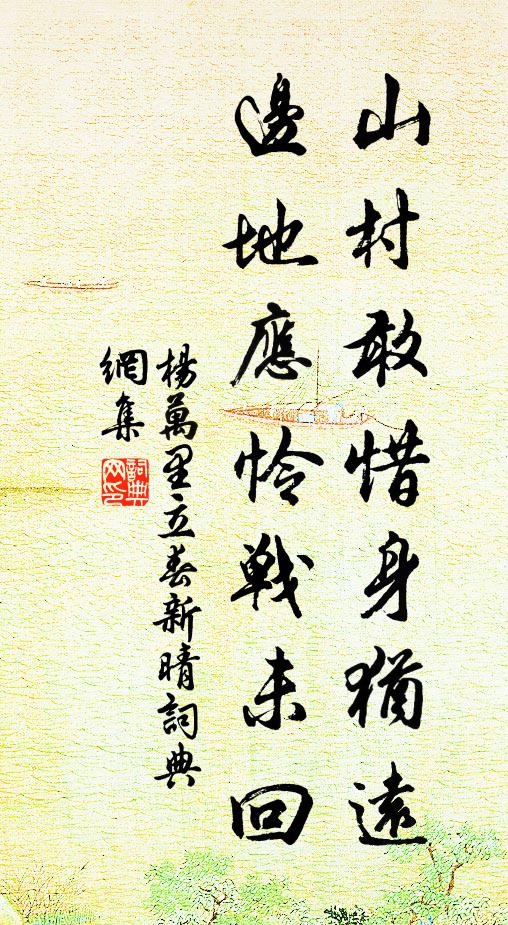 山村敢惜身猶遠
邊地應憐戰未回
楊萬里立春新晴詞典
網集
詞典
网印